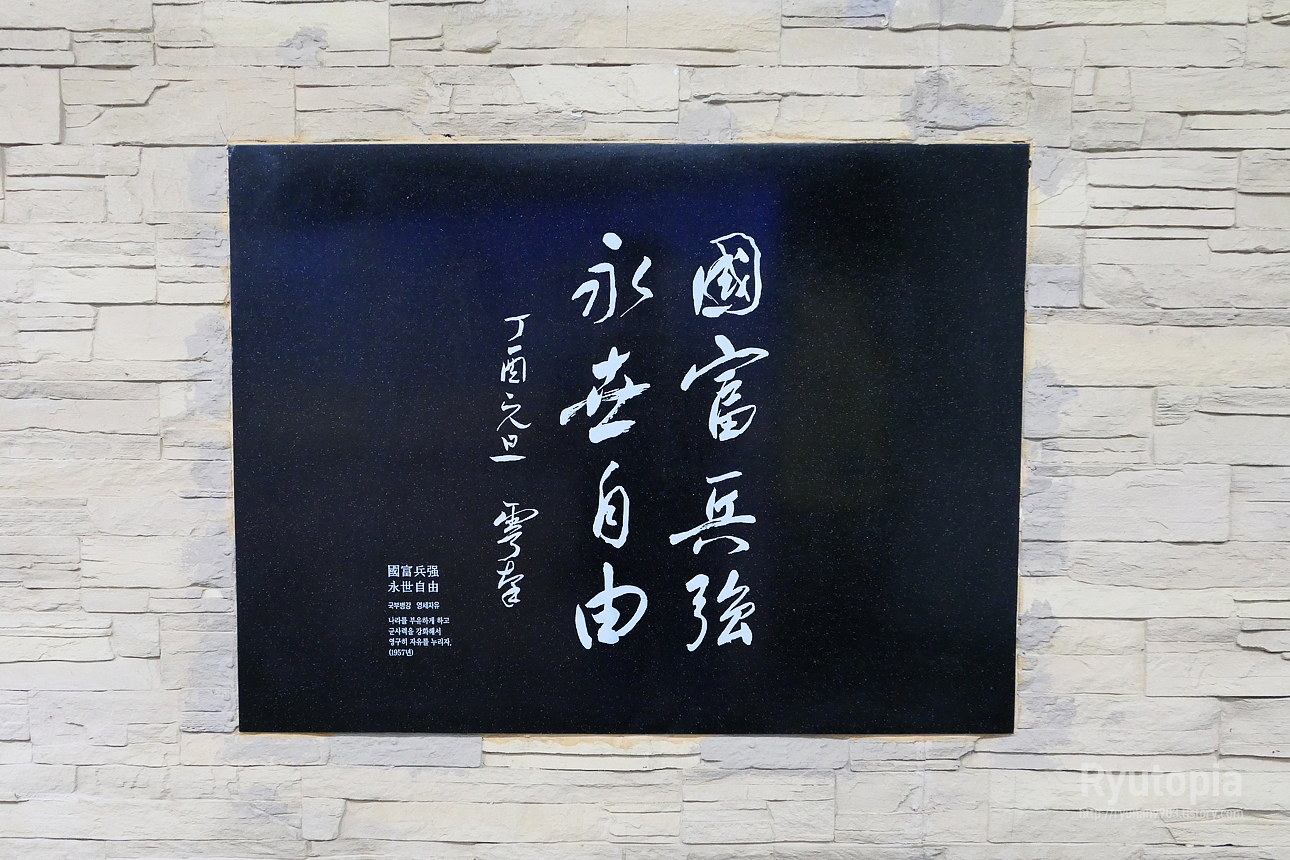 國富兵強
永世自由
丁酉元旦 雩南
國富兵强
永世自由
국부병강 영세자유
나라를 부유하게 하고
군사력을 강화해서
영구히 자유를 누리자.
(1957년)
Ryutopia